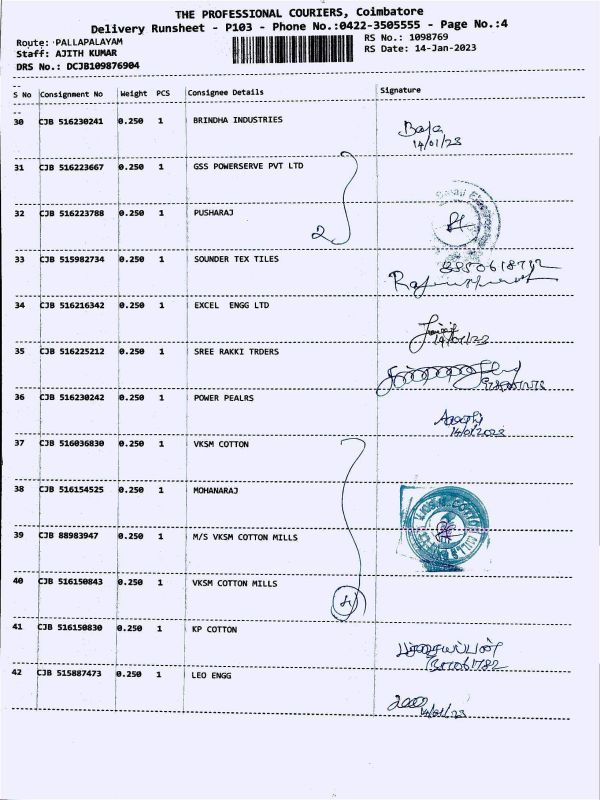 THE PROFESSIONAL COURIERS, Coimbatore
Delivery Runsheet - P103 - Phone No.:0422-3505555 - Page No.:4
Route: PALLAPALAYAM
RS No.: 1098769
Staff: AJITH KUMAR
RS Date: 14-Jan-2023
DRS No.: DCJB109876904
S No Consignment No Weight PCS Consignee Details Signature
30 CJB 516230241 0.250 1 BRINDHA INDUSTRIES
14/01/23
31 CJB 516223667 0.250 1 GSS POWERSERVE PVT LTD
32 CJB 516223788 0.250 1 PUSHARAJ
2
33 CJB 515982734 0.250 1 SOUNDER TEX TILES
34 CJB 516216342 0.250 1 EXCEL ENGG LTD
14/01/23
35 CJB 516225212 0.250 1 SREE RAKKI TRDERS
36 CJB 516230242 0.250 1 POWER PEALRS
14/01/2023
37 CJB 516036830 0.250 1 VKSM COTTON
38 CJB 516154525 0.250 1 MOHANARAJ
39 CJB 88983947 0.250 1 M/S VKSM COTTON MILLS
40 CJB 516150843 0.250 1 VKSM COTTON MILLS
4
41 CJB 516150830 0.250 1 KP COTTON
42 CJB 515887473 0.250 1 LEO ENGG
14/01/23